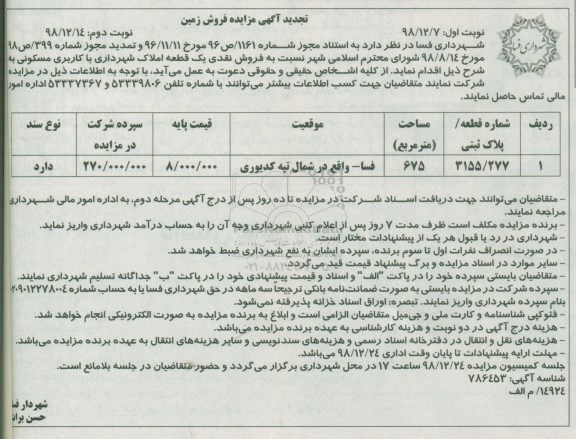 تجدید آگهی مزایده فروش زمین
نوبت اول: ۹۸/۱۲/۷
نوبت دوم: ۹۸/۱۲/۱۴
شهرداری فسا
شهرداری فسا در نظر دارد به استناد مجوز شماره ۱۱۶۱/ص۹۶ مورخ ۹۶/۱۱/۱۱ و تمدید مجوز شماره ۳۹۹/ص۹۸
مورخ ۹۸/۸/۱۴ شورای محترم اسلامی شهر نسبت به فروش نقدی یک قطعه املاک شهرداری با کاربری مسکونی به
شرح ذیل اقدام نماید. از کلیه اشخاص حقیقی و حقوقی دعوت به عمل می‌آید، با توجه به اطلاعات ذیل در مزایده
شرکت نمایند متقاضیان جهت کسب اطلاعات بیشتر می‌توانند با شماره تلفن ۵۳۳۳۹۸۰۶ و ۵۳۳۳۷۳۶۷ اداره امور
مالی تماس حاصل نمایند.
ردیف | شماره قطعه/ پلاک ثبتی | مساحت (مترمربع) | موقعیت | قیمت پایه | سپرده شرکت در مزایده | نوع سند
۱ | ۳۱۵۵/۲۷۷ | ۶۷۵ | فسا- واقع در شمال تپه کدیوری | ۸/۰۰۰/۰۰۰ | ۲۷۰/۰۰۰/۰۰۰ | دارد
- متقاضیان می‌توانند جهت دریافت اسناد شرکت در مزایده تا ده روز پس از درج آگهی مرحله دوم، به اداره امور مالی شهرداری
مراجعه نمایند.
- برنده مزایده مکلف است ظرف مدت ۷ روز پس از اعلام کتبی شهرداری وجه آن را به حساب درآمد شهرداری واریز نماید.
- شهرداری در رد یا قبول هر یک از پیشنهادات مختار است.
- در صورت انصراف نفرات اول تا سوم برنده، سپرده ایشان به نفع شهرداری ضبط خواهد شد.
- سایر موارد در اسناد مزایده و برگ پیشنهاد قیمت قید می‌گردد.
- متقاضیان بایستی سپرده خود را در پاکت "الف" و اسناد و قیمت پیشنهادی خود را در پاکت "ب" جداگانه تسلیم شهرداری نمایند.
- سپرده شرکت در مزایده بایستی به صورت ضمانت‌نامه بانکی ترجیحاً سه ماهه در حق شهرداری فسا یا به حساب شماره
بنام سپرده شهرداری واریز نمایند. تبصره: اوراق اسناد خزانه پذیرفته نمی‌شود.
- فتوکپی شناسنامه و کارت ملی و جی‌میل متقاضیان الزامی است و ابلاغ به برنده مزایده به صورت الکترونیکی انجام خواهد شد.
- هزینه درج آگهی در دو نوبت و هزینه کارشناسی به عهده برنده مزایده می‌باشد.
- هزینه‌های نقل و انتقال در دفترخانه اسناد رسمی و هزینه‌های سندنویسی و سایر هزینه‌های انتقال به عهده برنده مزایده می‌باشد.
- مهلت ارایه پیشنهادات تا پایان وقت اداری ۹۸/۱۲/۲۴ می‌باشد.
جلسه کمیسیون مزایده ۹۸/۱۲/۲۴ ساعت ۱۷ در محل شهرداری برگزار می‌گردد و حضور متقاضیان در جلسه بلامانع است.
شناسه آگهی: ۷۸۶۴۵۳
۱۴۹۲۴/ م الف
شهردار فسا
حسن برا